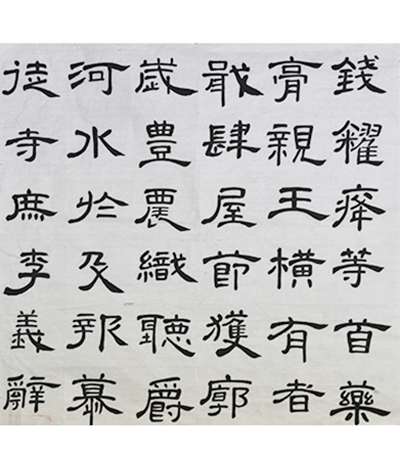 錢糴癃等首藥
膏親王橫有者
戢肆屋節獲廓
歲豐農織聽爵
河水於及報慕
徒寺庶李義辭